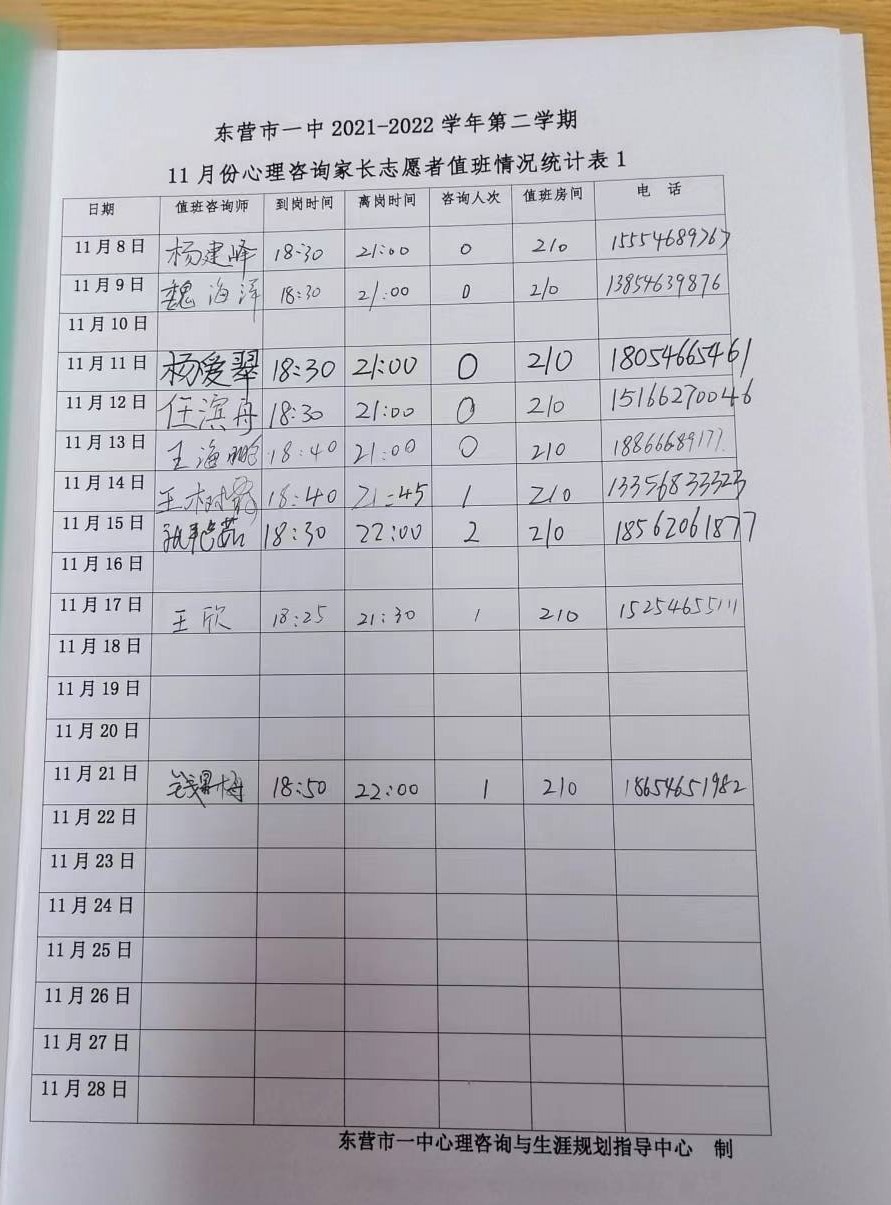 东营市一中 2021-2022 学年第二学期
11 月份心理咨询家长志愿者值班情况统计表 1
日期 值班咨询师 到岗时间 离岗时间 咨询人次 值班房间 电 话
11 月 8 日 杨建峰 18:30 21:00 0 210 15554689767
11 月 9 日 魏海洋 18:30 21:00 0 210 13854639876
11 月 10 日
11 月 11 日 杨爱翠 18:30 21:00 0 210 18054665461
11 月 12 日 任滨舟 18:30 21:00 0 210 15166270046
11 月 13 日 王海鹏 18:40 21:00 0 210
11 月 14 日 18:40 21:45 1 210 13356833323
11 月 15 日 18:30 22:00 2 210 18562061877
11 月 16 日
11 月 17 日 王欣 18:25 21:30 1 210 15254655111
11 月 18 日
11 月 19 日
11 月 20 日
11 月 21 日 18:50 22:00 1 210 18654651982
11 月 22 日
11 月 23 日
11 月 24 日
11 月 25 日
11 月 26 日
11 月 27 日
11 月 28 日
东营市一中心理咨询与生涯规划指导中心 制